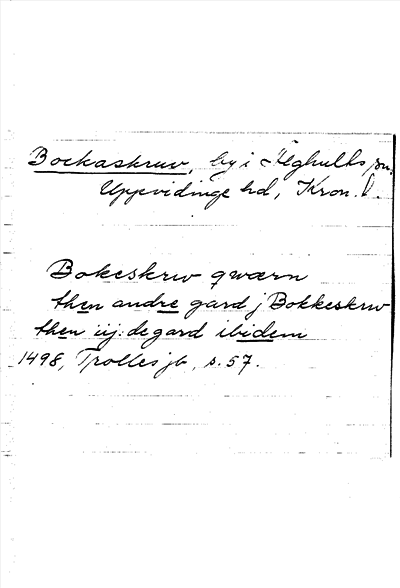 Bockaskruv, by i Älghults sn.
Uppvidinge hd, Kron. l.
Bokeskrw qwærn
then andre gard j Bokkeskrw
then iij: de gard ibidem
1498, Trolles jb, s. 57.